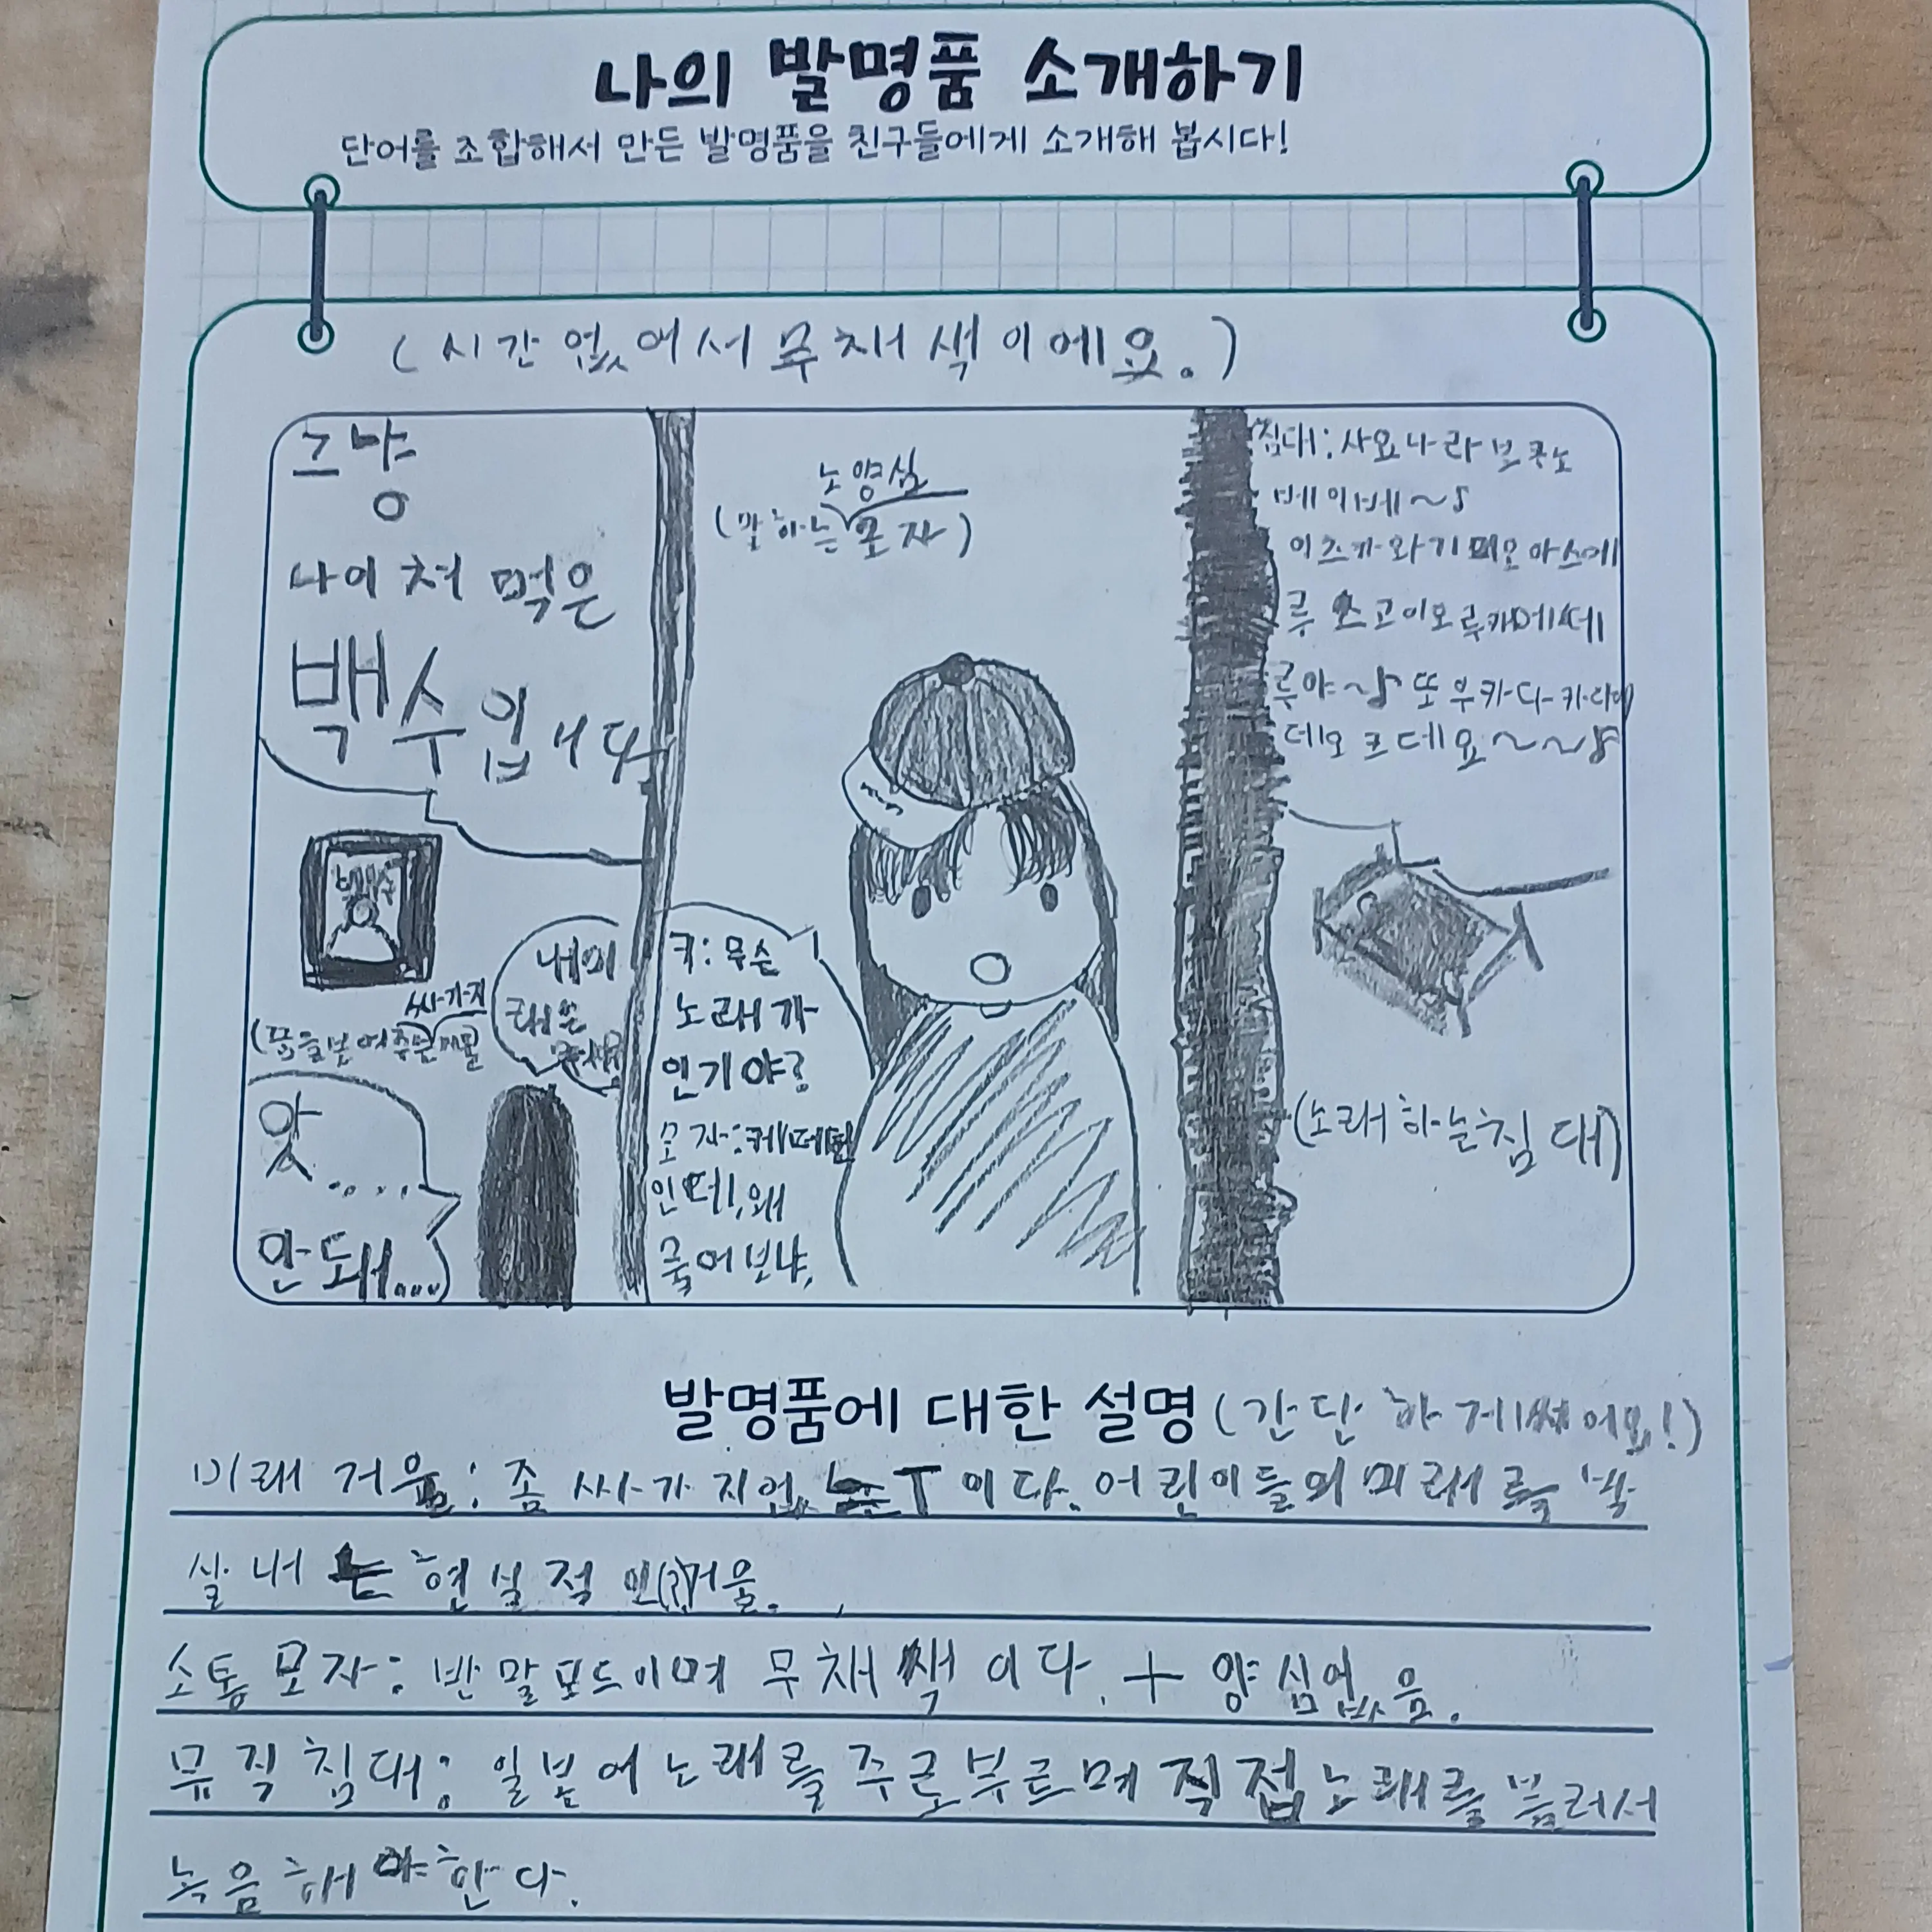 나의 발명품 소개하기
단어를 조합해서 만든 발명품을 친구들에게 소개해 봅시다!
(시간 없어서 무채색이에요.)
그냥
나이 처 먹은
백수입니다
백수
싸가지
(꿈을 보여주는 거울
내 미
래는
앗....
안돼....
노양심
(말하는 모자)
키: 무슨
노래가
인기야?
모자: 케데헌
인데, 왜
물어보냐,
침대: 사요나라 보쿠노
베이베~♪
이츠카와 키미오 아스에
루 스고이
루야~♪ 또
데오 데요~~♪
(노래하는 침대)
발명품에 대한 설명 (간단하게 써어요!)
미래 거울: 좀 싸가지없는 T이다. 어린이들의 미래를 박
살내는 현실적인(?)거울.
소통 모자: 반말모드이며 무채색이다. + 양심없음.
뮤직침대: 일본어 노래를 주로 부르며 직접 노래를 불러서
녹음해야한다.